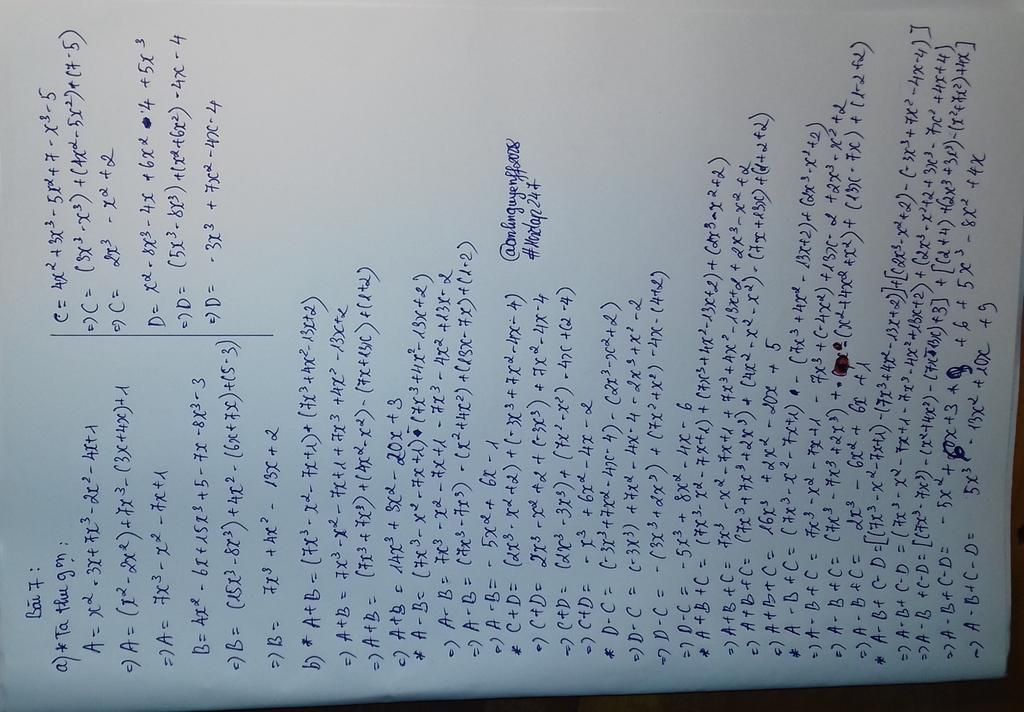 Bài 7:
a) * Ta thu gọn:
A = x² - 3x + 7x³ - 2x² - 4x + 1
=) A = (x² - 2x²) + 7x³ - (3x + 4x) + 1
=) A = 7x³ - x² - 7x + 1
B = 4x² - 6x + 15x³ + 5 - 7x - 8x³ - 3
=) B = (15x³ - 8x³) + 4x² - (6x + 7x) + (5 - 3)
=) B = 7x³ + 4x² - 13x + 2
C = 4x² + 3x³ - 5x² + 7 - x³ - 5
=) C = (3x³ - x³) + (4x² - 5x²) + (7 - 5)
=) C = 2x³ - x² + 2
D = x² - 8x³ - 4x + 6x² - 4 + 5x³
=) D = (5x³ - 8x³) + (x² + 6x²) - 4x - 4
=) D = -3x³ + 7x² - 4x - 4
b) * A+B = (7x³ - x² - 7x + 1) + (7x³ + 4x² - 13x + 2)
=) A+B = 7x³ - x² - 7x + 1 + 7x³ + 4x² - 13x + 2
=) A+B = (7x³ + 7x³) + (4x² - x²) - (7x + 13x) + (1+2)
=) A+B = 14x³ + 3x² - 20x + 3
* A - B = (7x³ - x² - 7x + 1) - (7x³ + 4x² - 13x + 2)
=) A - B = 7x³ - x² - 7x + 1 - 7x³ - 4x² + 13x - 2
=) A - B = (7x³ - 7x³) - (x² + 4x²) + (13x - 7x) + (1 - 2)
=) A - B = - 5x² + 6x - 1
* C + D = (2x³ - x² + 2) + (-3x³ + 7x² - 4x - 4)
=) C + D = 2x³ - x² + 2 + (-3x³) + 7x² - 4x - 4
=) C + D = (2x³ - 3x³) + (7x² - x²) - 4x + (2 - 4)
=) C + D = - x³ + 6x² - 4x - 2
* D - C = (-3x³ + 7x² - 4x - 4) - (2x³ - x² + 2)
=) D - C = (-3x³) + 7x² - 4x - 4 - 2x³ + x² - 2
=) D - C = -(3x³ + 2x³) + (7x² + x²) - 4x - (4 + 2)
=) D - C = - 5x³ + 8x² - 4x - 6
* A + B + C = (7x³ - x² - 7x + 1) + (7x³ + 4x² - 13x + 2) + (2x³ - x² + 2)
=) A + B + C = 7x³ - x² - 7x + 1 + 7x³ + 4x² - 13x + 2 + 2x³ - x² + 2
=) A + B + C = (7x³ + 7x³ + 2x³) + (4x² - x² - x²) - (7x + 13x) + (1 + 2 + 2)
=) A + B + C = 16x³ + 2x² - 20x + 5
* A - B + C = (7x³ - x² - 7x + 1) - (7x³ + 4x² - 13x + 2) + (2x³ - x² + 2)
=) A - B + C = 7x³ - x² - 7x + 1 - 7x³ + (-4x²) + 13x - 2 + 2x³ - x² + 2
=) A - B + C = (7x³ - 7x³ + 2x³) - (x² + 4x² + x²) + (13x - 7x) + (1 - 2 + 2)
=) A - B + C = 2x³ - 6x² + 6x + 1
* A - B + C - D = [(7x³ - x² - 7x + 1) - (7x³ + 4x² - 13x + 2)] + [(2x³ - x² + 2) - (-3x³ + 7x² - 4x - 4)]
=) A - B + C - D = (7x³ - x² - 7x + 1 - 7x³ - 4x² + 13x + 2) + (2x³ - x² + 2 + 3x³ - 7x² + 4x + 4)
=) A - B + C - D = - 5x² + 6x + 3 + 6 + 5x³ - 8x² + 4x
=) A - B + C - D = 5x³ - 13x² + 10x + 9
@anhnguyenff2008
#Hoidap247